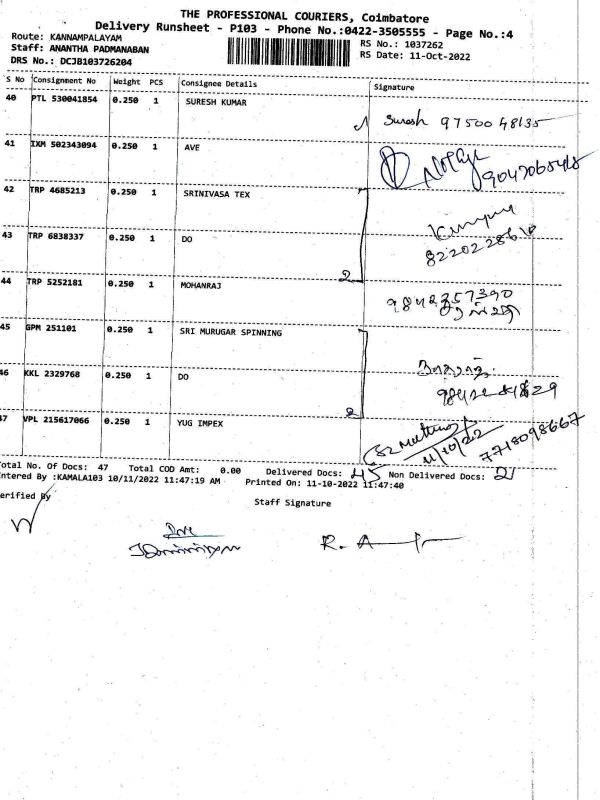 THE PROFESSIONAL COURIERS, Coimbatore
Delivery Runsheet - P103 - Phone No.:0422-3505555 - Page No.:4
Route: KANNAMPALAYAM
Staff: ANANTHA PADMANABAN
DRS No.: DCJB103726204
RS No.: 1037262
RS Date: 11-Oct-2022
S No Consignment No Weight PCS Consignee Details Signature
40 PTL 530041854 0.250 1 SURESH KUMAR Suresh 9750048135
41 IXM 502343094 0.250 1 AVE
42 TRP 4685213 0.250 1 SRINIVASA TEX
43 TRP 6838337 0.250 1 DO
2
44 TRP 5252181 0.250 1 MOHANRAJ 9842357390
45 GPM 251101 0.250 1 SRI MURUGAR SPINNING
46 KKL 2329768 0.250 1 DO
2
47 VPL 215617066 0.250 1 YUG IMPEX
11/10/22 7718098667
Total No. Of Docs: 47 Total COD Amt: 0.00 Delivered Docs: 45 Non Delivered Docs: 2
Entered By :KAMALA103 10/11/2022 11:47:19 AM Printed On: 11-10-2022 11:47:40
Verified By
Staff Signature